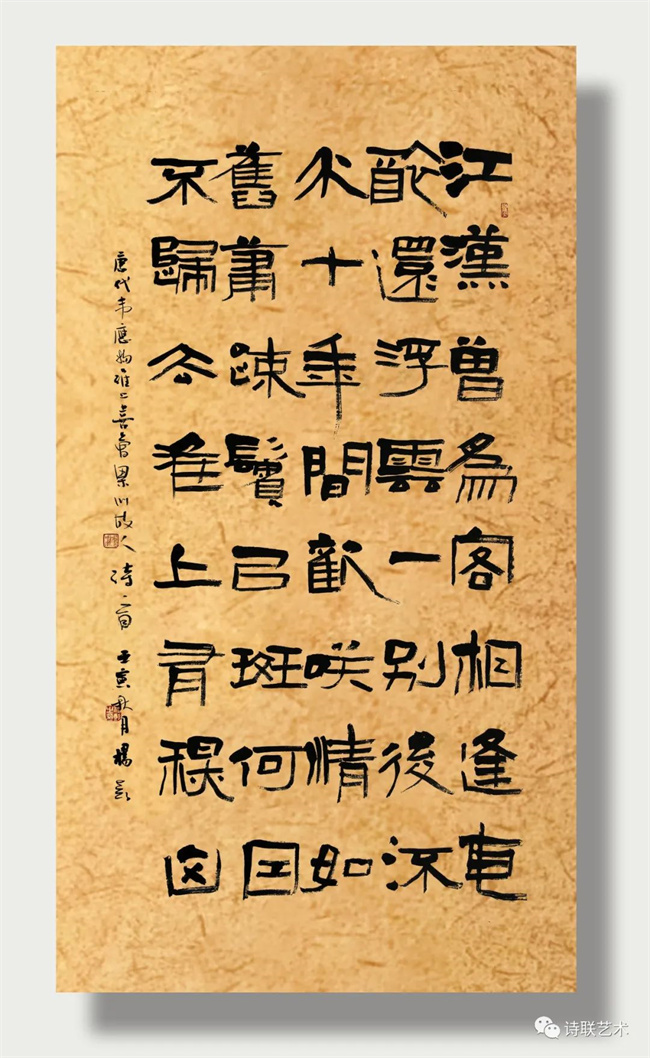 江漢曾為客相逢每
醉還浮雲一別後流
水十年間歡咲情如
舊蕭疎鬢已斑何因
不歸去淮上有秋山
唐代韦應物淮上喜會梁川故人詩一首 壬寅秋月 楊
诗联艺术